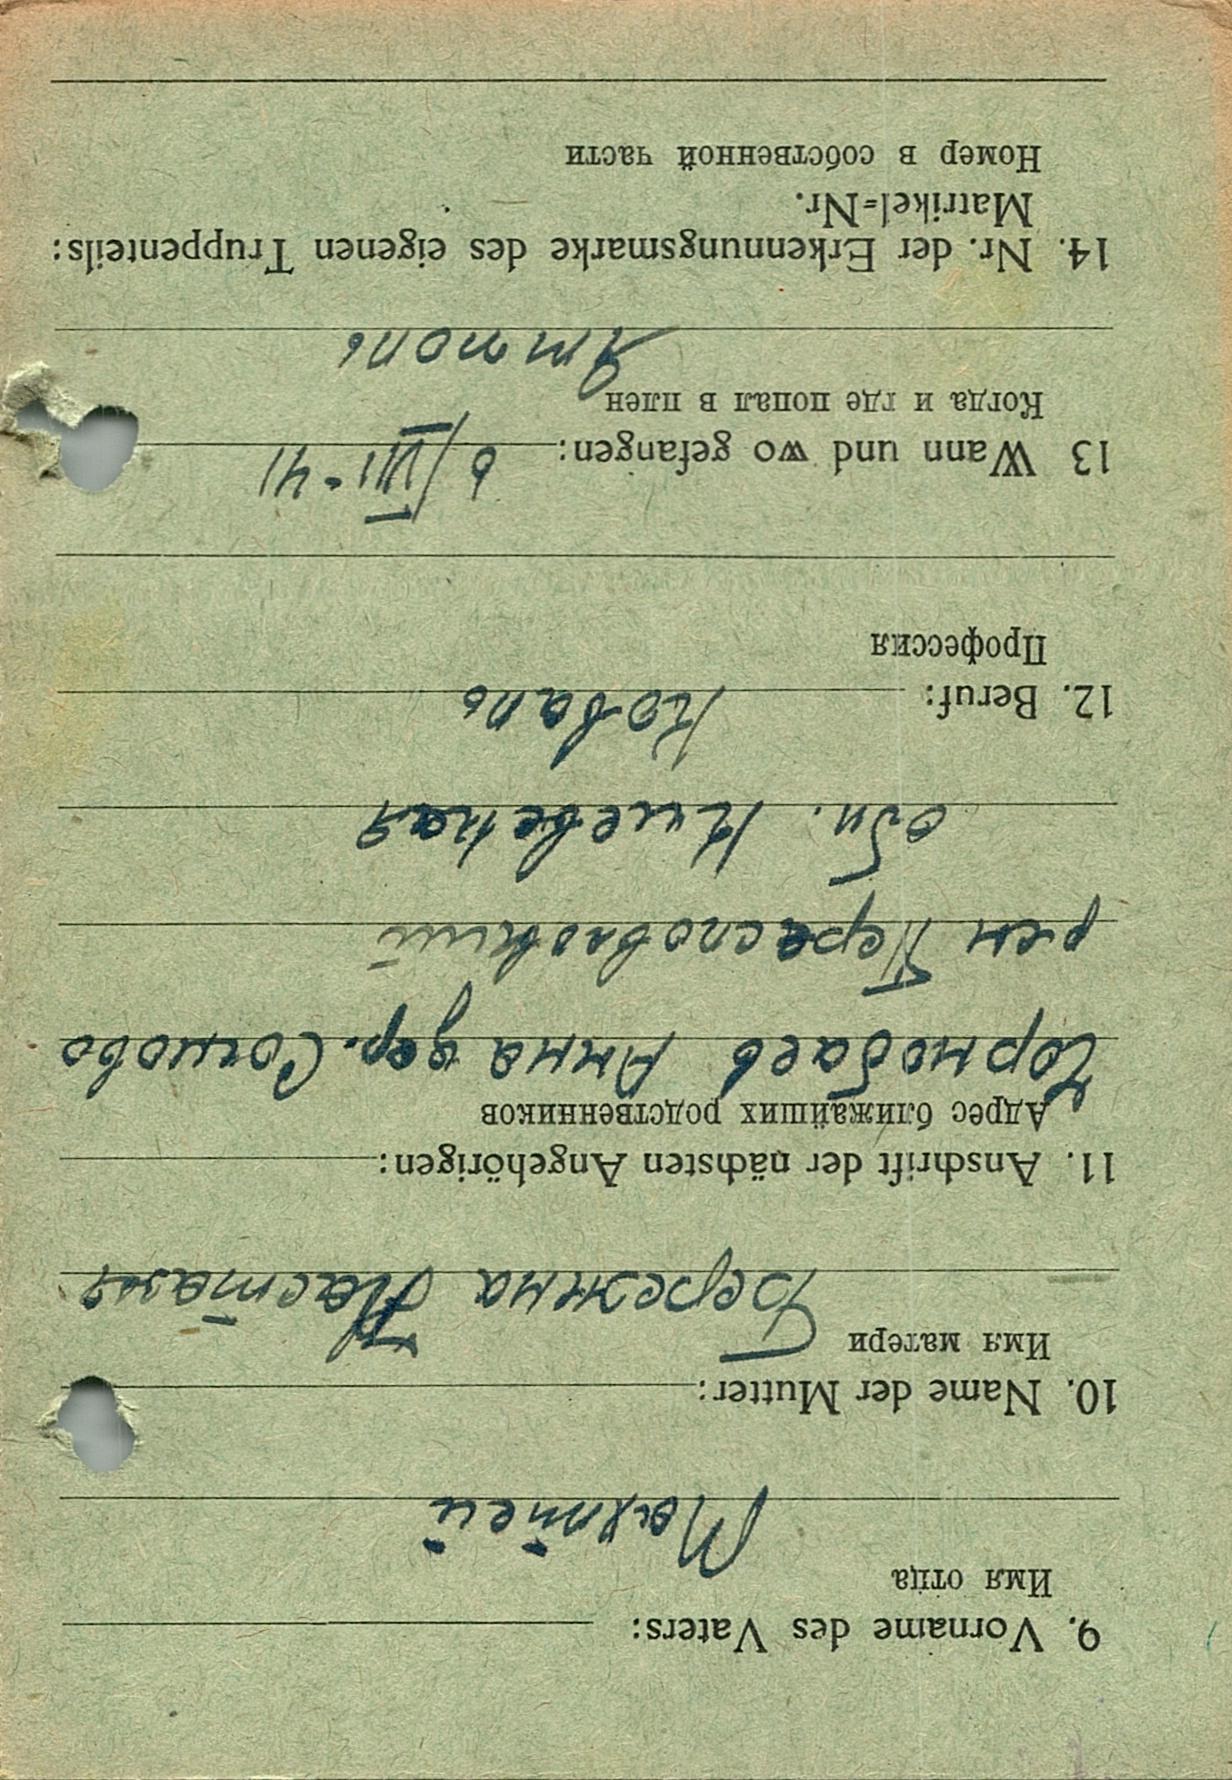 9. Vorname des Vaters:
Имя отца
Матвей
10. Name der Mutter:
Имя матери
Бережна Настазия
11. Anschrift der nächsten Angehörigen:
Адрес ближайших родственников
Анна дер. Сошново
обл. Киевская
12. Beruf:
Коваль
Профессия
13 Wann und wo gefangen: 6/VIII-41
Когда и где попал в плен
14. Nr. der Erkennungsmarke des eigenen Truppenteils:
Matrikel=Nr.
Номер в собственной части